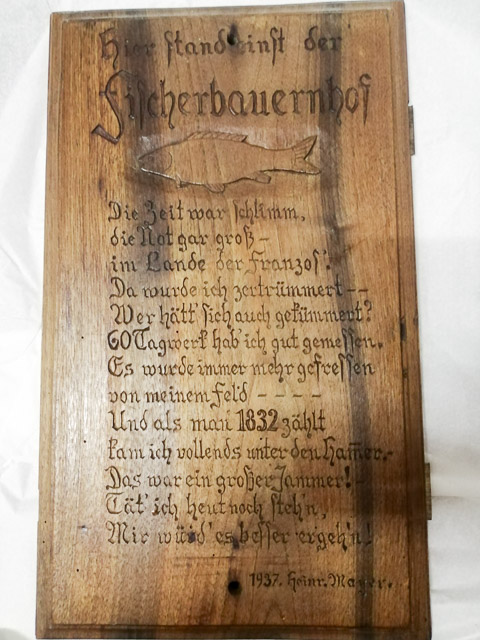 Hier stand einst der
Fischerbauernhof
Die Zeit war schlimm,
die Not gar groß –
im Lande der Franzos'.
Da wurde ich zertrümmert --
Wer hätt' sich auch gekümmert?
60 Tagwerk hab' ich gut gemessen.
Es wurde immer mehr gefressen
von meinem Feld ----
Und als man 1832 zählt
kam ich vollends unter den Ham̄er.-
Das war ein großer Jammer! -
Tät' ich heut noch steh'n,
Mir würd' es besser ergeh'n!
1937. Heinr. Mayer.